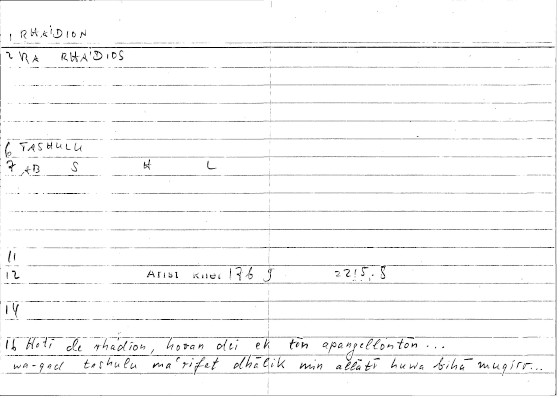 1 RHA'DION
2 RA RHA'DIOS
6 TASHULU
7 AB S H L
11
12 Arist Rhet 136 9 2215.8
14
16 Hoti de rhádion, horan dei ek tōn apangellontōn...
wa-qad tashulu ma'rifet dhālik min allātī huwa bihā muqirr...